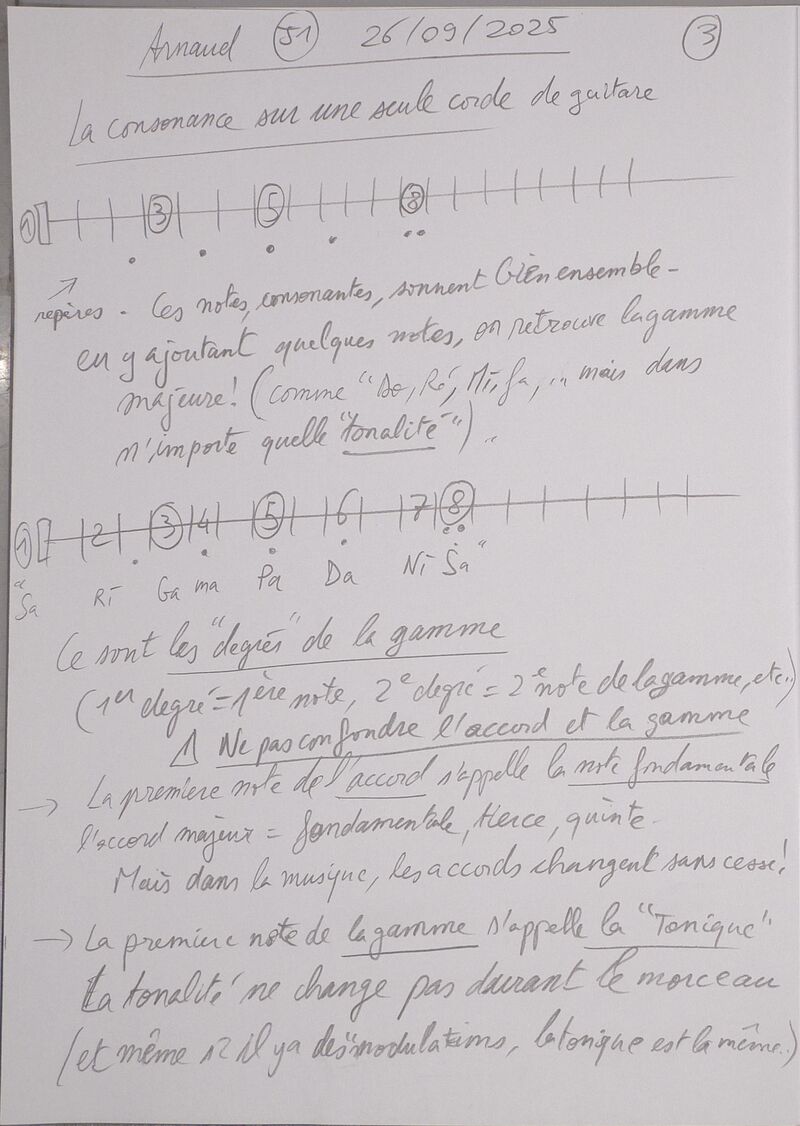 Arnaud 51 26/09/2025 3
La consonance sur une seule corde de guitare
1 3 5 8
repères. Ces notes, consonantes, sonnent bien ensemble -
en y ajoutant quelques notes, on retrouve la gamme
majeure! (comme "Do, Ré, Mi, Fa, ... mais dans
n'importe quelle "tonalité").
1 2 3 4 5 6 7 8
"Sa Ri Ga ma Pa Da Ni Sa"
Ce sont les "degrés" de la gamme
(1er degré = 1ère note, 2e degré = 2e note de la gamme, etc..)
⚠ Ne pas confondre l'accord et la gamme
→ La première note de l'accord s'appelle la note fondamentale
l'accord majeur = fondamentale, tierce, quinte.
Mais dans la musique, les accords changent sans cesse!
→ La première note de la gamme s'appelle la "Tonique"
La tonalité ne change pas durant le morceau
(et même s'il y a des "modulations, la tonique est la même..)